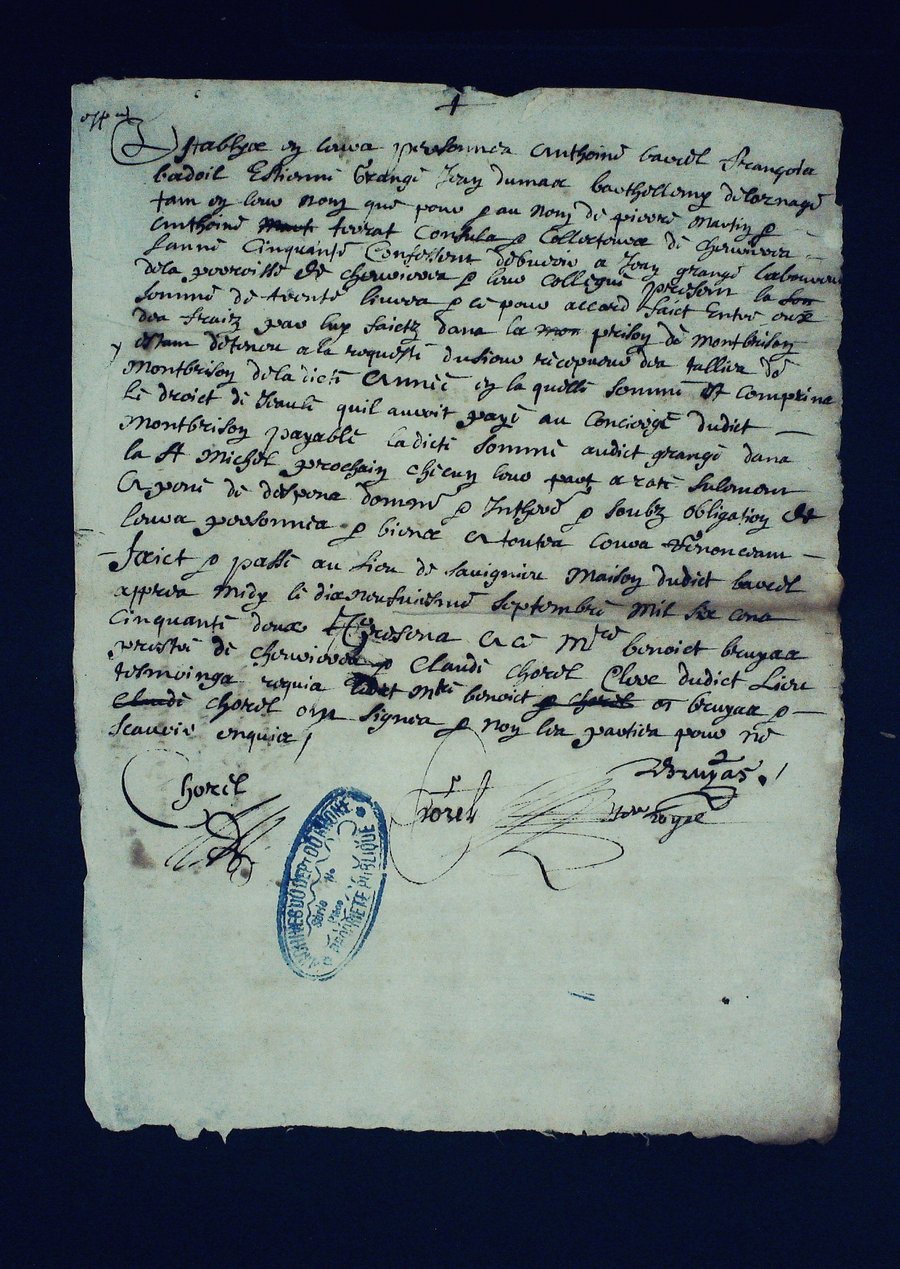 Establyz en leurs personnes Anthoine barrel François
badoil Estienne Grangé Jean dumas barthellemy delornage
tam en leur nom que pour & au nom de pierre Martin &
Anthoine terrat Consulz & Collecteurs de cherieres
lanné Cinquante Confessent debvoir a Jean grangé laboureur
dela parroisse de cherieres & leur collegue present la
somme de trente livres & ce pour accord faict Entre eux
des fraitz par luy faictz dans la prison de Montbrison
estam detenu a la requeste du sieur recepveur des tallies de
Montbrison deladicte Année en la quelle somme est comprins
le droict de geaule quil auroit payé au Concierge dudict
Montbrison payable ladicte somme audict grangé dans
la St Michel prochain chécun leur part a rate sulement
A pene de despens domme & Inthere & soubz obligation de
leurs personnes & biens A toutes Cours Renonceam
faict & passé au lieu de savignieu Maison dudict barrel
appres midy le dixneufviesme septembre Mil six cens
Cinquante deux Presens A ce Mre benoict bruyas
prestre de cherieres & Claude chorel Clerc dudict Lieu
tesmoings requis Mre benoict bruyas &
chorel ont signes & non les parties pour ne
scavoir enquis /
Chorel
Bruyas /
Chorel
Nore Royal
ARCHIVES DU DEPT DU RHONE
Serie
No
Pièce
PROPRIETE PUBLIQUE